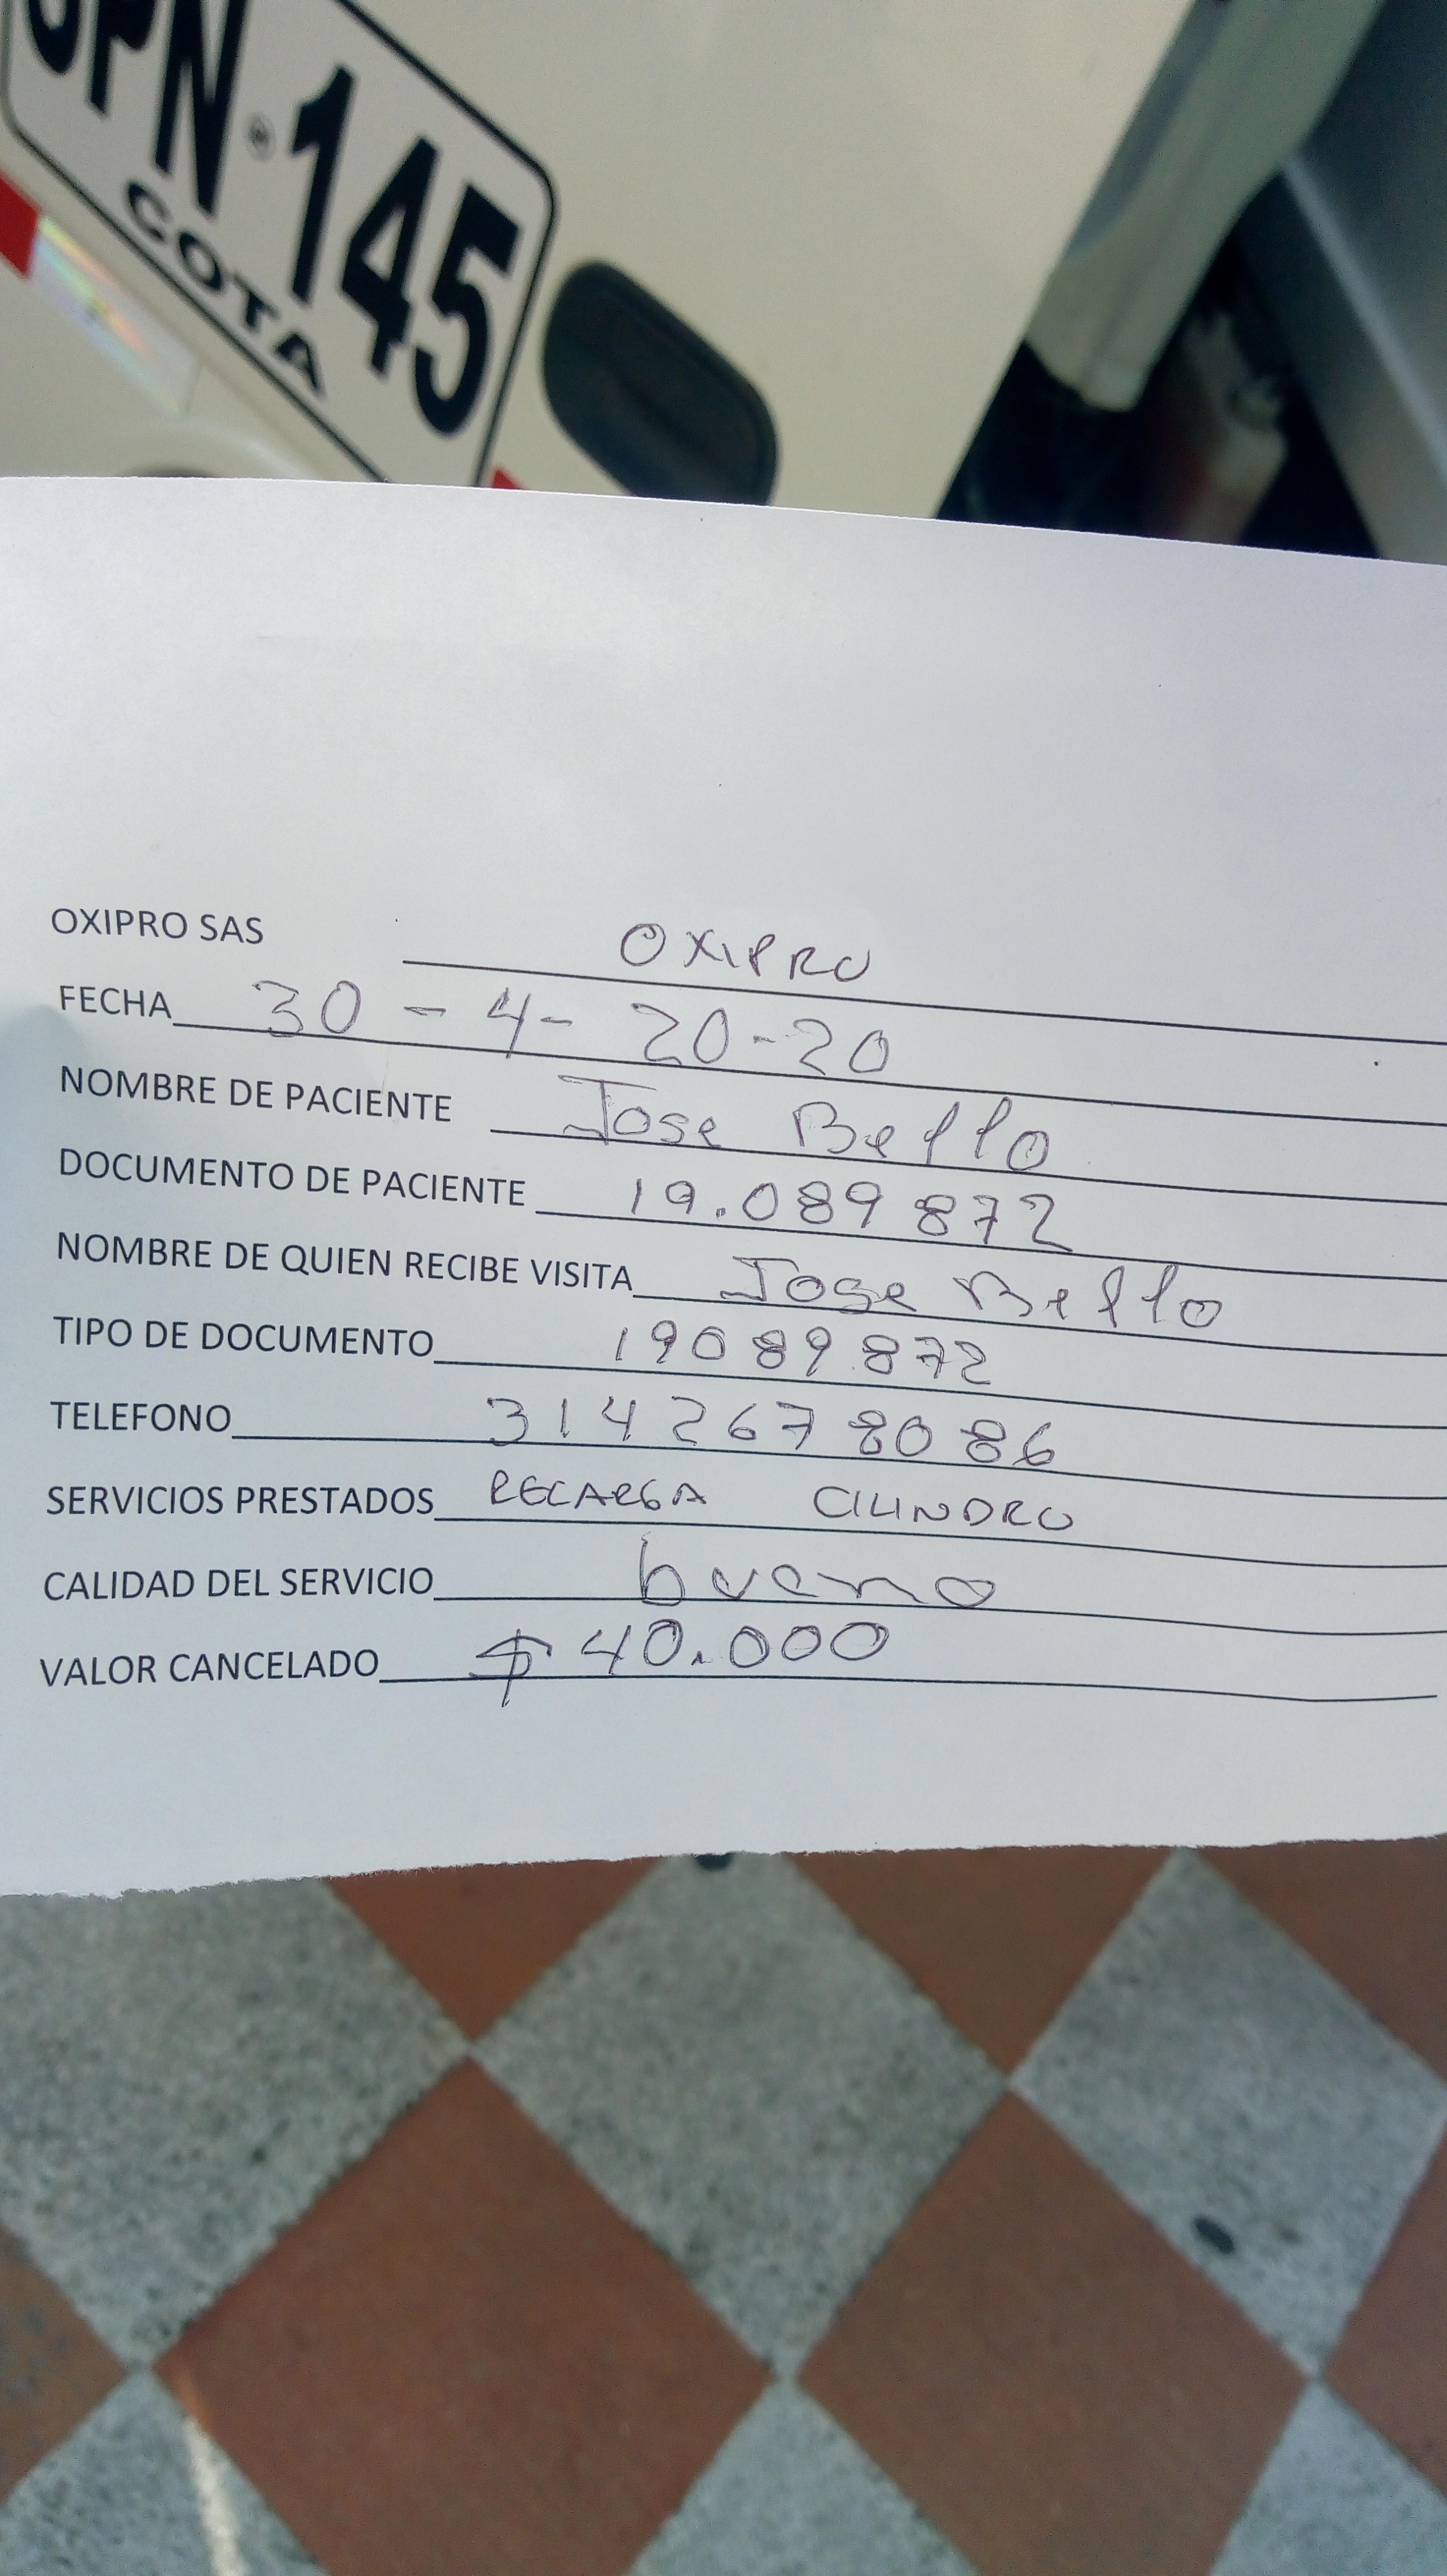 145
COTA
OXIPRO SAS OXIPRO
FECHA 30 - 4 - 20-20
NOMBRE DE PACIENTE Jose Bello
DOCUMENTO DE PACIENTE 19.089 872
NOMBRE DE QUIEN RECIBE VISITA Jose Bello
TIPO DE DOCUMENTO 19089872
TELEFONO 314267 80 86
SERVICIOS PRESTADOS RECARGA CILINDRO
CALIDAD DEL SERVICIO bueno
VALOR CANCELADO $ 40.000